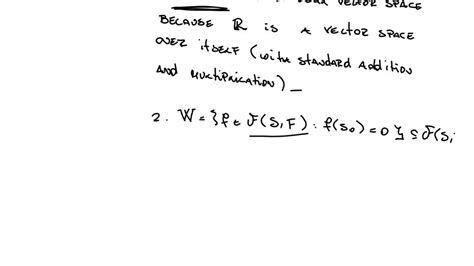 VECTOR SPACE
BECAUSE ℝ IS A VECTOR SPACE
OVER ITSELF (WITH STANDARD ADDITION
AND MULTIPLICATION)_
2. W = { f ∈ F(S,F) : f(s₀) = 0 } ⊆ F(S,